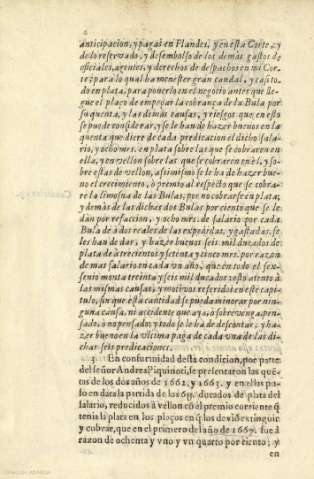 anticipacion, y pagas en Flandes, y en esta Corte, y
de lo reservado, y desembolso de los demàs gastos de
oficiales, agentes, y derechos de despachos en mi Cor-
te; para lo qual ha menester gran caudal, y casi to-
do en plata, para ponerlo en el negocio antes que lle-
gue el plaço de empeçar la cobrança de la Bula por
su quenta, y las demàs causas, y riesgos que en esto
se puede considerar, y se le han de hazer buenos en la
quenta que diere de cada predicacion el dicho sala-
rio, y ocho mrs. en plata sobre las que se cobraren en
ella, y en vellon sobre las que se cobraren en èl, y so-
bre estas de vellon, assimismo se le ha de hazer bue-
no el crecimiento, ò premio al respecto que se cobra-
re la limosna de las Bulas, por no cobrarse en plata;
y demàs de las dichas dos Bulas por ciento que se le
dàn por refaccion, y ocho mrs. de salario por cada
Bula de à dos reales de las expedidas, y gastadas, se
les han de dar, y hazer buenos seis mil ducados de
plata de à trecientos y setenta y cinco mrs. por razon
de mas salario en cada un año, que en todo el sex-
enio monta treinta y seis mil ducados, esto atento à
las mismas causas, y motivos referidos en este capi-
tulo, sin que esta cantidad se pueda minorar por nin-
guna causa, ni accidente que aya, ò sobrevenga pen-
sado, ò no pensado; y todo se le ha de descontar, y ha-
zer bueno en la ultima paga de cada una de las di-
chas seis predicaciones.
3 En conformidad desta condicion, por parte
del señor Andrea Piquinoti, se presentaron las quē-
tas de los dos años de 1662. y 1663. y en ellas pu-
so en data la partida de los 6y. ducados de plata del
salario, reducidos à vellon cō el premio corriente q̄
tenia la plata en los plaços en q̄ los deviò extinguir
y cobrar, que en el primero del año de 1662. fue à
razon de ochenta y vno y vn quarto por ciento; y
en